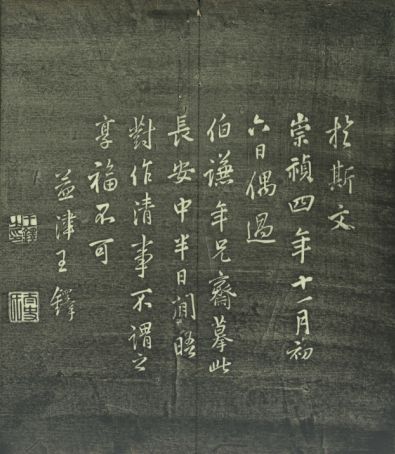 於斯文
崇禎四年十一月初
六日偶過
伯謙年兄齋摹此
長安中半日閒晤
對作清事不謂之
享福不可
孟津王鐸
王鐸之印